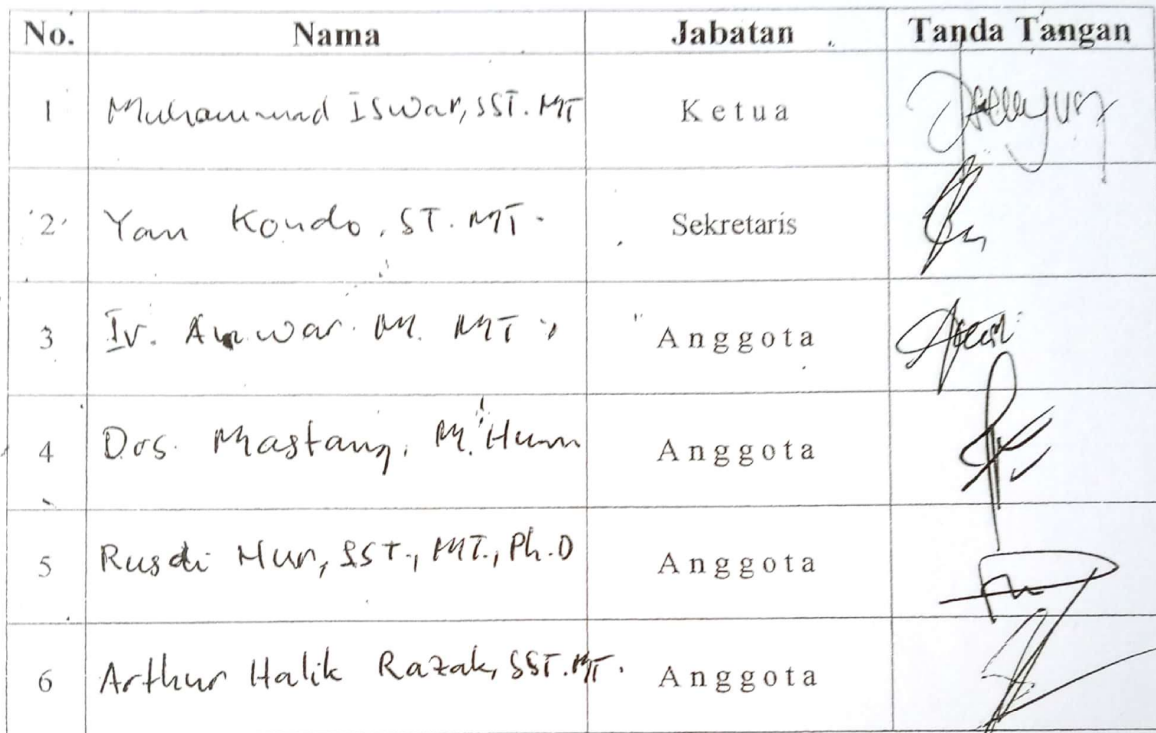 No. Nama Jabatan Tanda Tangan
1 Muhammad Iswar, SST. MT Ketua
2 Yan Kondo, ST. MT. Sekretaris
3 Ir. Anwar. M. MT Anggota
4 Drs. Mastang, M. Hum Anggota
5 Rusdi Nur, SST., MT., Ph.D Anggota
6 Arthur Halik Razak, SST. MT. Anggota